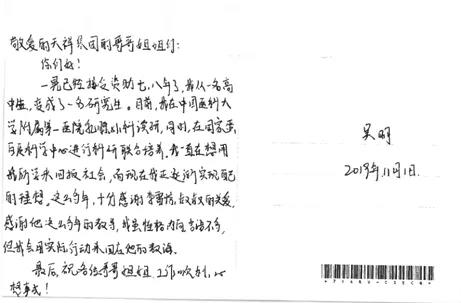 敬爱的天祥集团的哥哥姐姐们:
你们好!
一晃已经接受资助七、八年了,我从一名高
中生,变成了一名研究生。目前,我在中国医科大
学附属第一医院乳腺外科读研,同时,在国家蛋
白质科学中心进行科研联合培养,我一直在想用
我所学来回报社会,而现在我正逐渐实现自己
的理想,这么多年,十分感谢李哥哥、叔叔的关爱,
感谢他这么多年的教导,我虽性格内向言语不多,
但我会用实际行动来回应他的教诲。
最后,祝各位哥哥姐姐工作顺利,心
想事成!
吴明
2019年11月1日